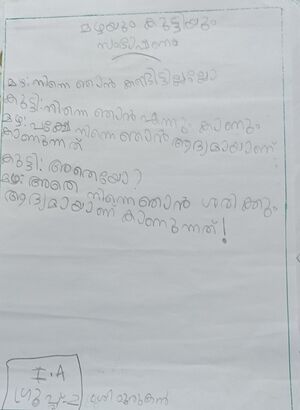 മഴയും കുട്ടിയും
സംഭാഷണം
മഴ: നിന്നെ ഞാൻ കണ്ടിട്ടില്ലല്ലോ
കുട്ടി: നിന്നെ ഞാൻ എന്നും കാണും
മഴ: പക്ഷേ നിന്നെ ഞാൻ ആദ്യമായാണ്
കാണുന്നത്
കുട്ടി: അതെയോ?
മഴ: അതെ നിന്നെ ഞാൻ ശരിക്കും
ആദ്യമായാണ് കാണുന്നത്!
I.A
ഗ്രൂപ്പ്-2